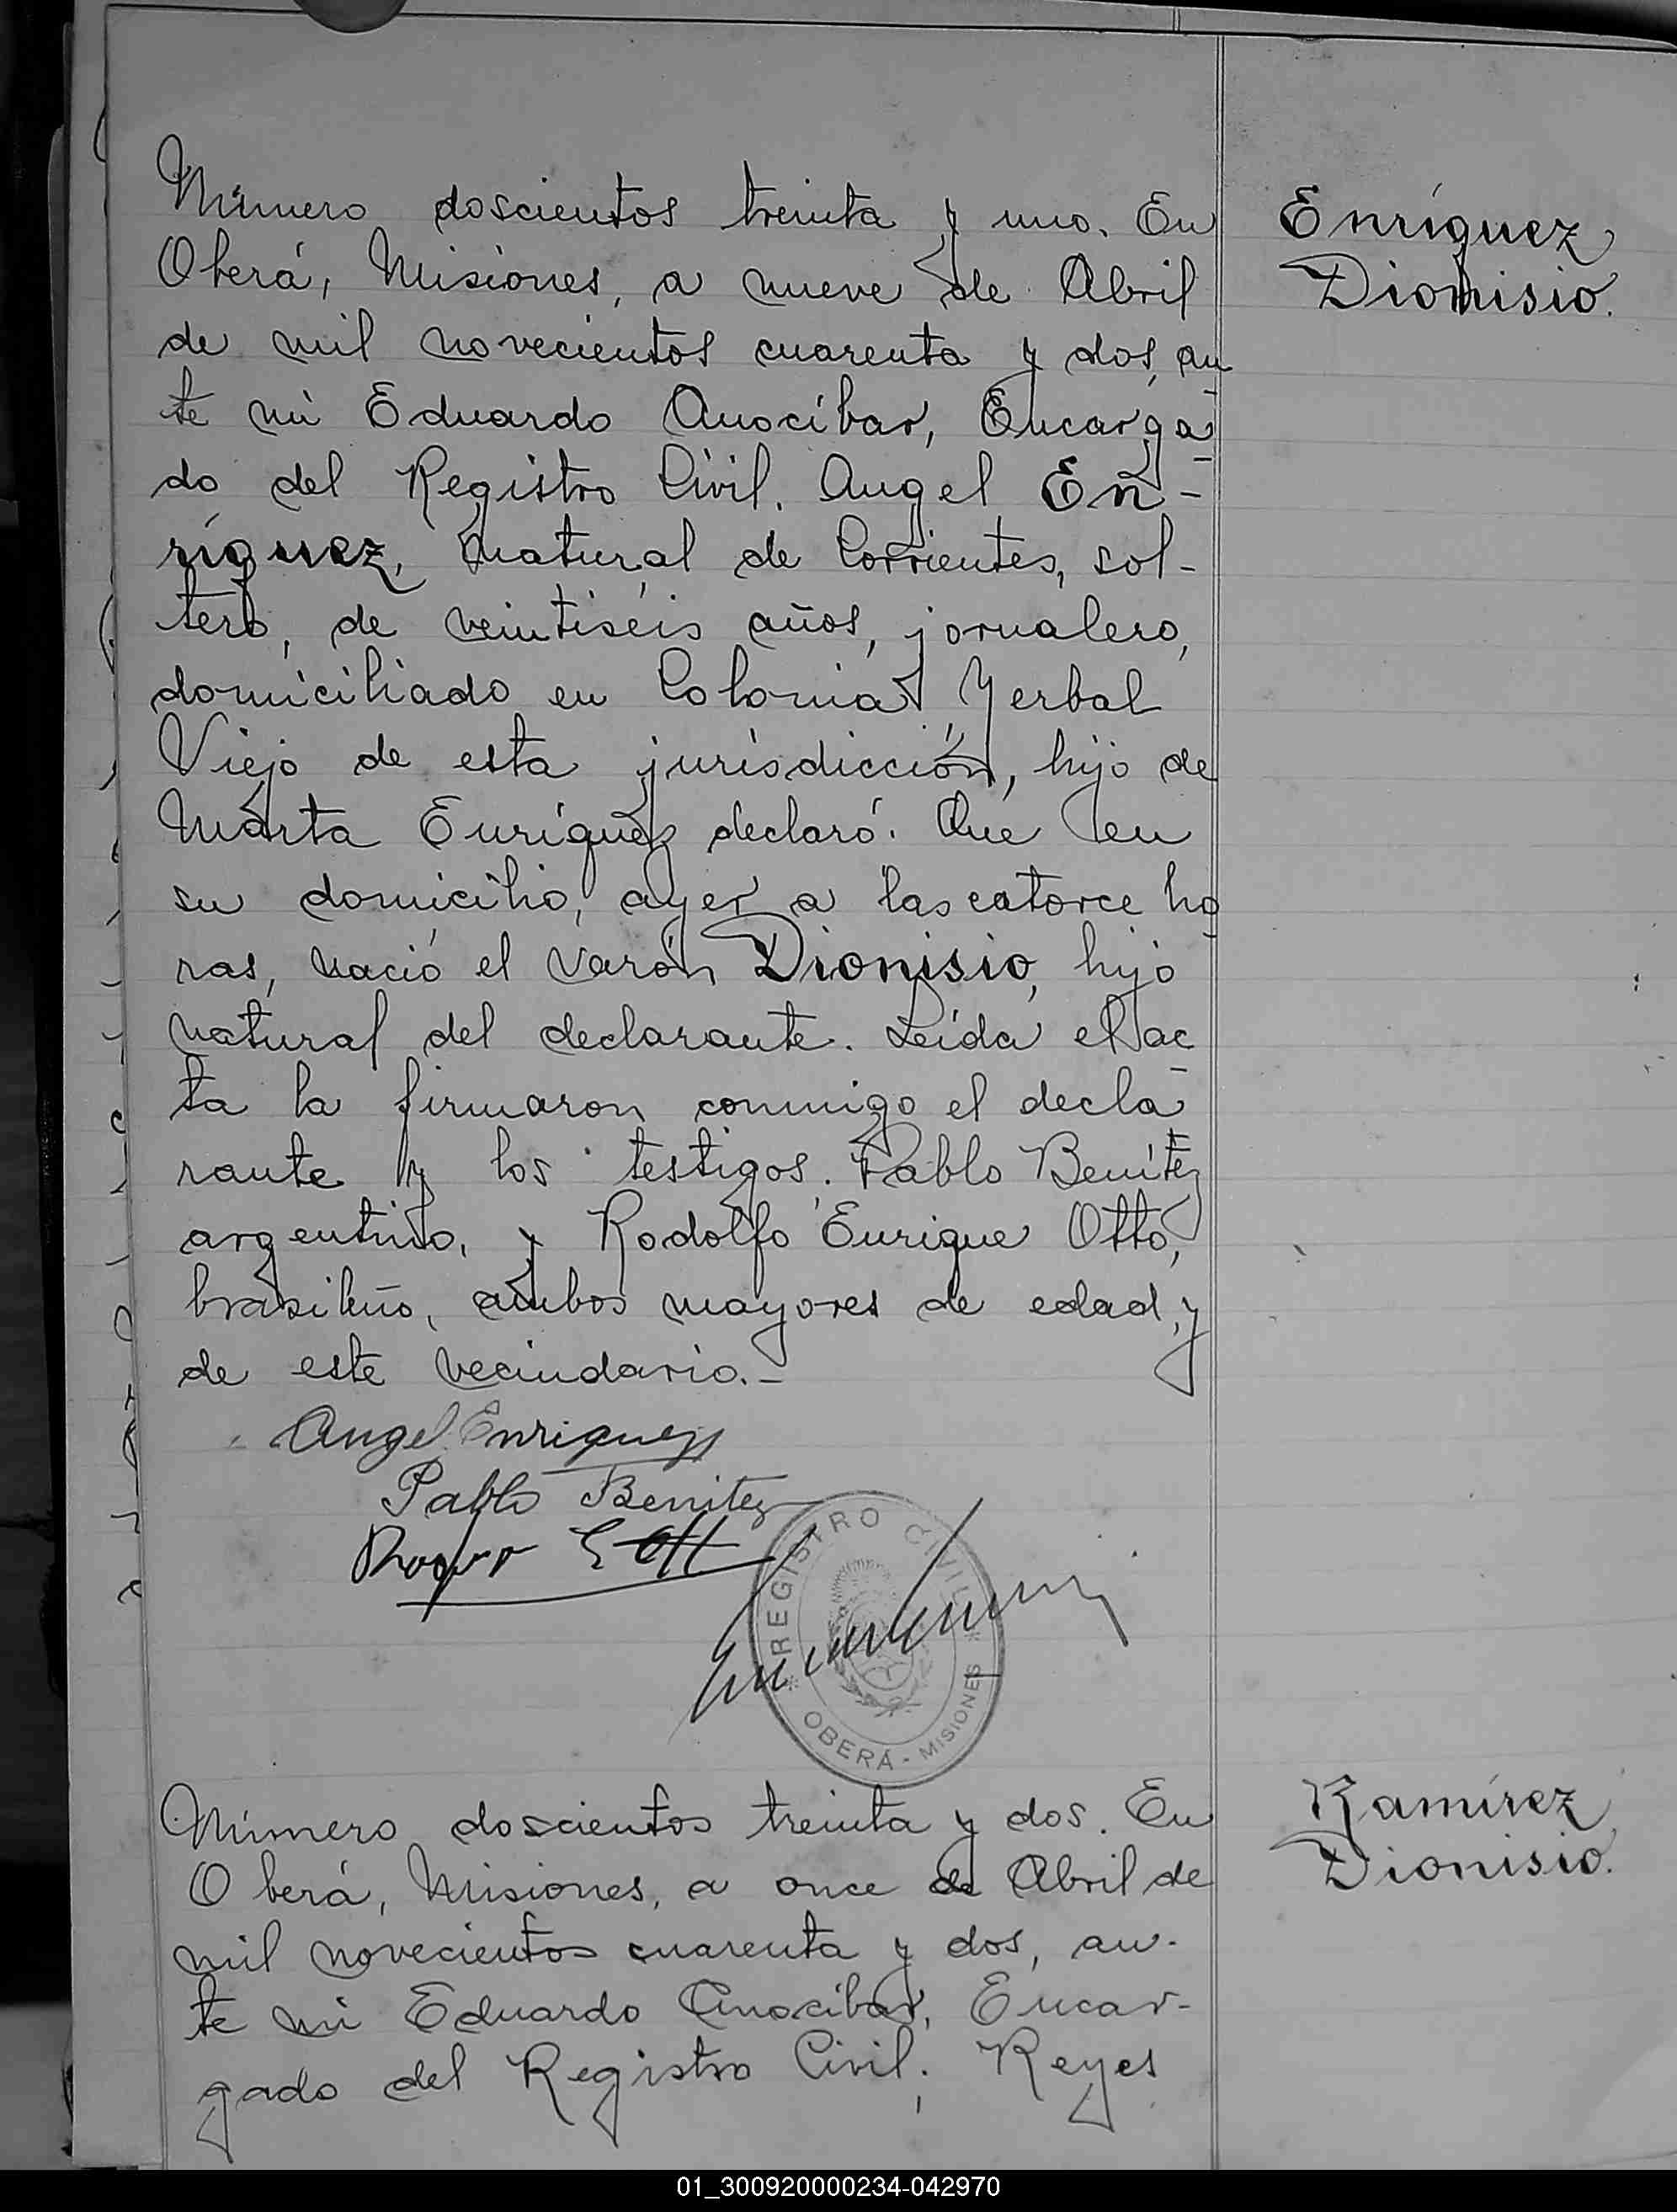 Número doscientos treinta y uno. En
Oberá, Misiones, a nueve de Abril
de mil novecientos cuarenta y dos, an-
te mi Eduardo Anocíbar, Encarga-
do del Registro Civil. Angel En-
ríquez, natural de Corrientes, sol-
tero, de veintiséis años, jornalero,
domiciliado en Colonia Yerbal
Viejo de esta jurisdicción, hijo de
Marta Enríquez declaró: Que en
su domicilio, ayer a las catorce ho-
ras, nació el varón Dionisio, hijo
natural del declarante. Leída el ac-
ta la firmaron conmigo el decla-
rante y los testigos: Pablo Benítez
argentino, y Rodolfo Enrique Otto,
brasileño, ambos mayores de edad, y
de este vecindario.-
Angel Enriquez
Pablo Benitez
REGISTRO CIVIL
OBERÁ - MISIONES
Número doscientos treinta y dos. En
Oberá, Misiones, a once de Abril de
mil novecientos cuarenta y dos, an-
te mi Eduardo Anocíbar, Encar-
gado del Registro Civil; Reyes
Enríquez
Dionisio.
Ramírez
Dionisio.
01_300920000234-042970